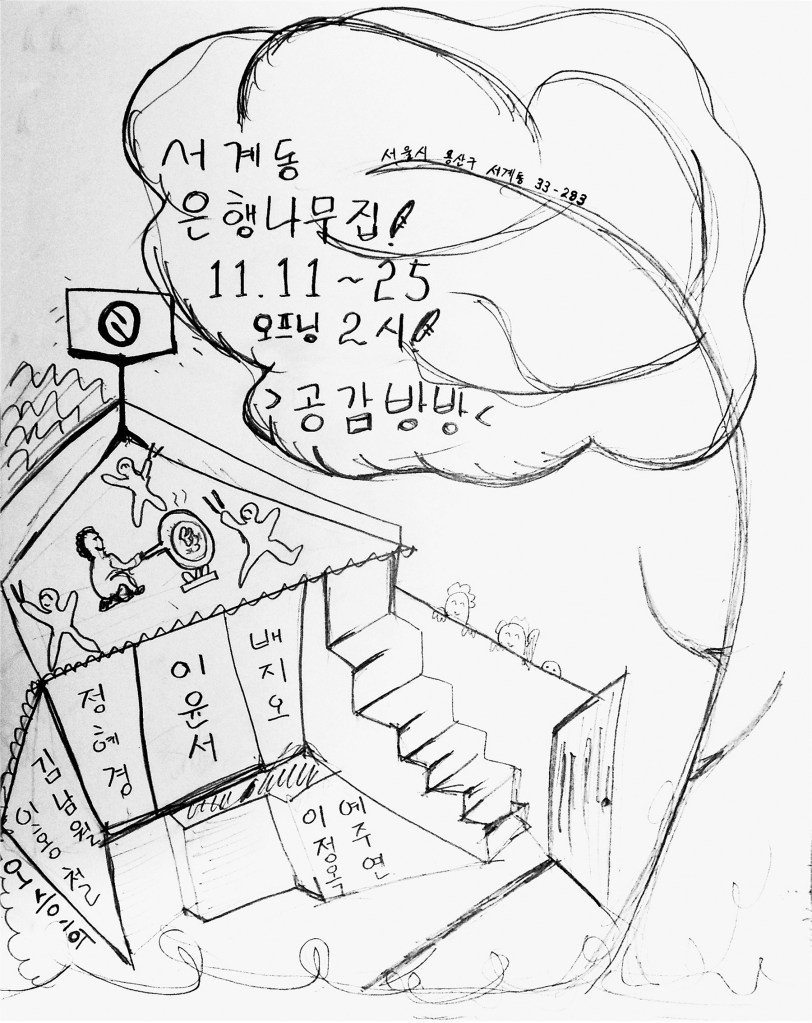 서계동
은행나무집!
서울시 용산구 서계동 33-283
11.11~25
오프닝 2시!
>공감방방<
배지오
이윤서
정혜경
김남열
이웅철
예주연
이정옥